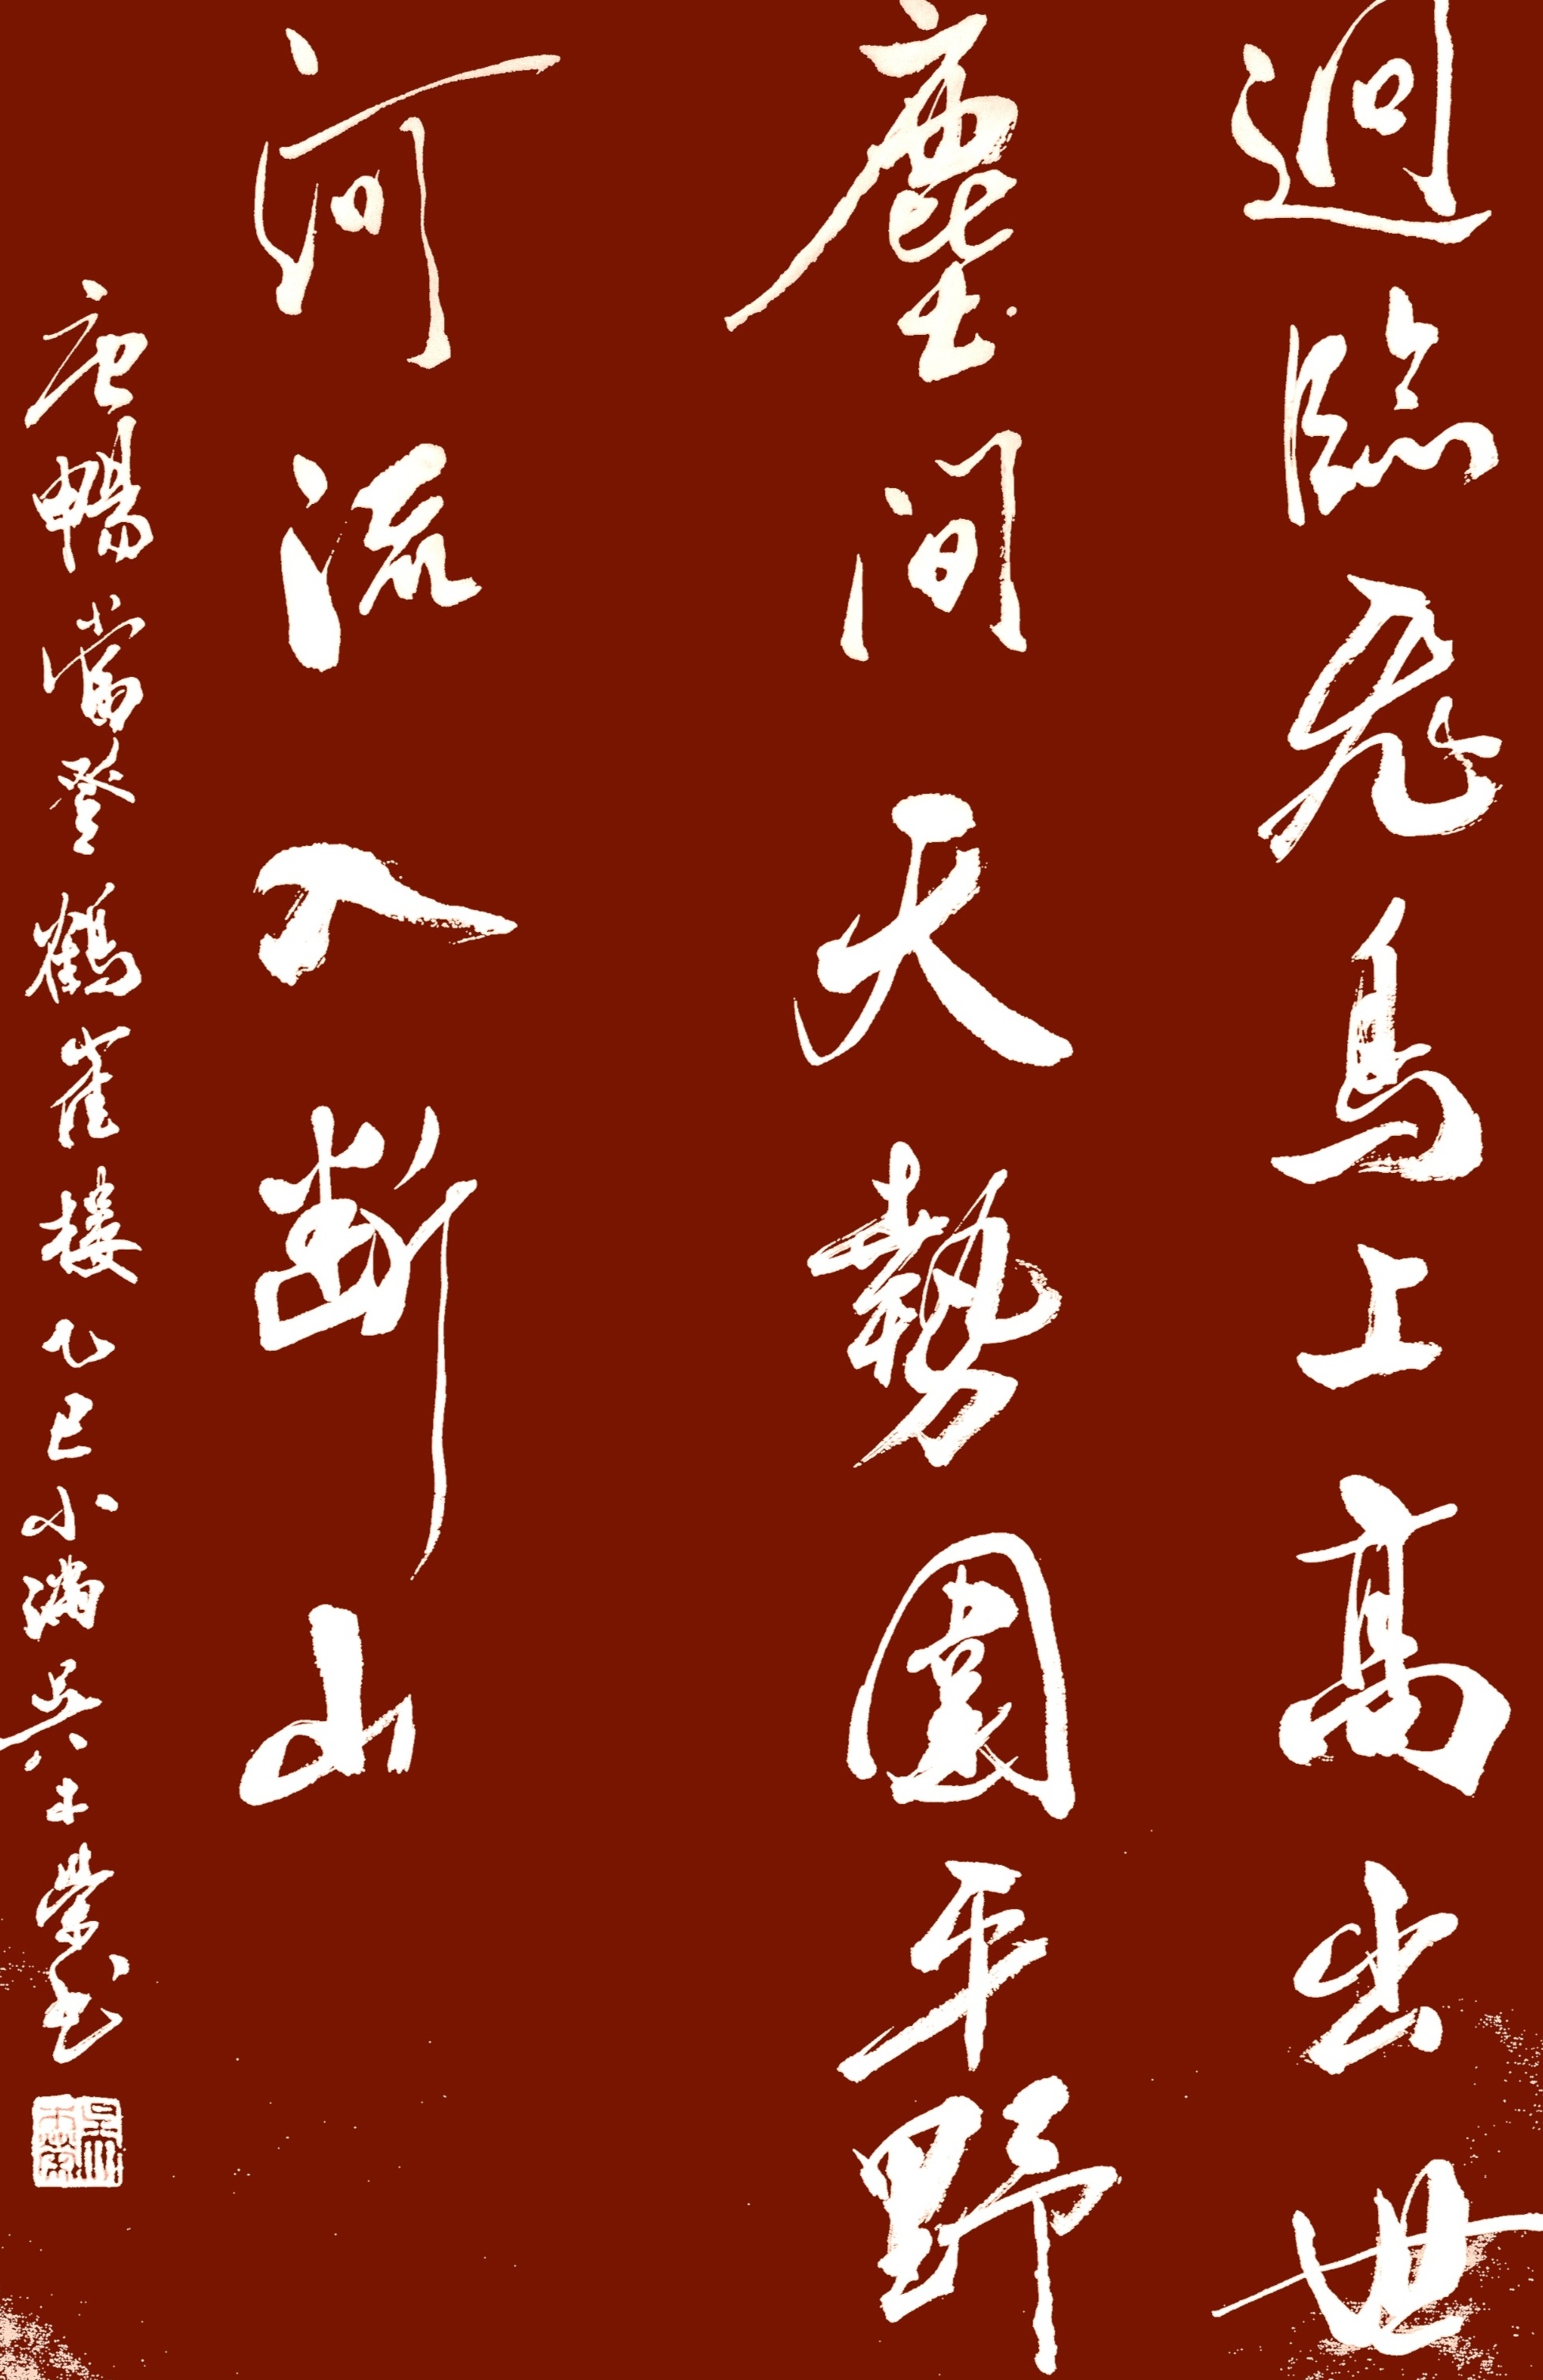 迥臨飛鳥上高出世
塵間天勢圍平野
河流入断山
唐暢當登鶴雀樓乙巳小滿吳
书